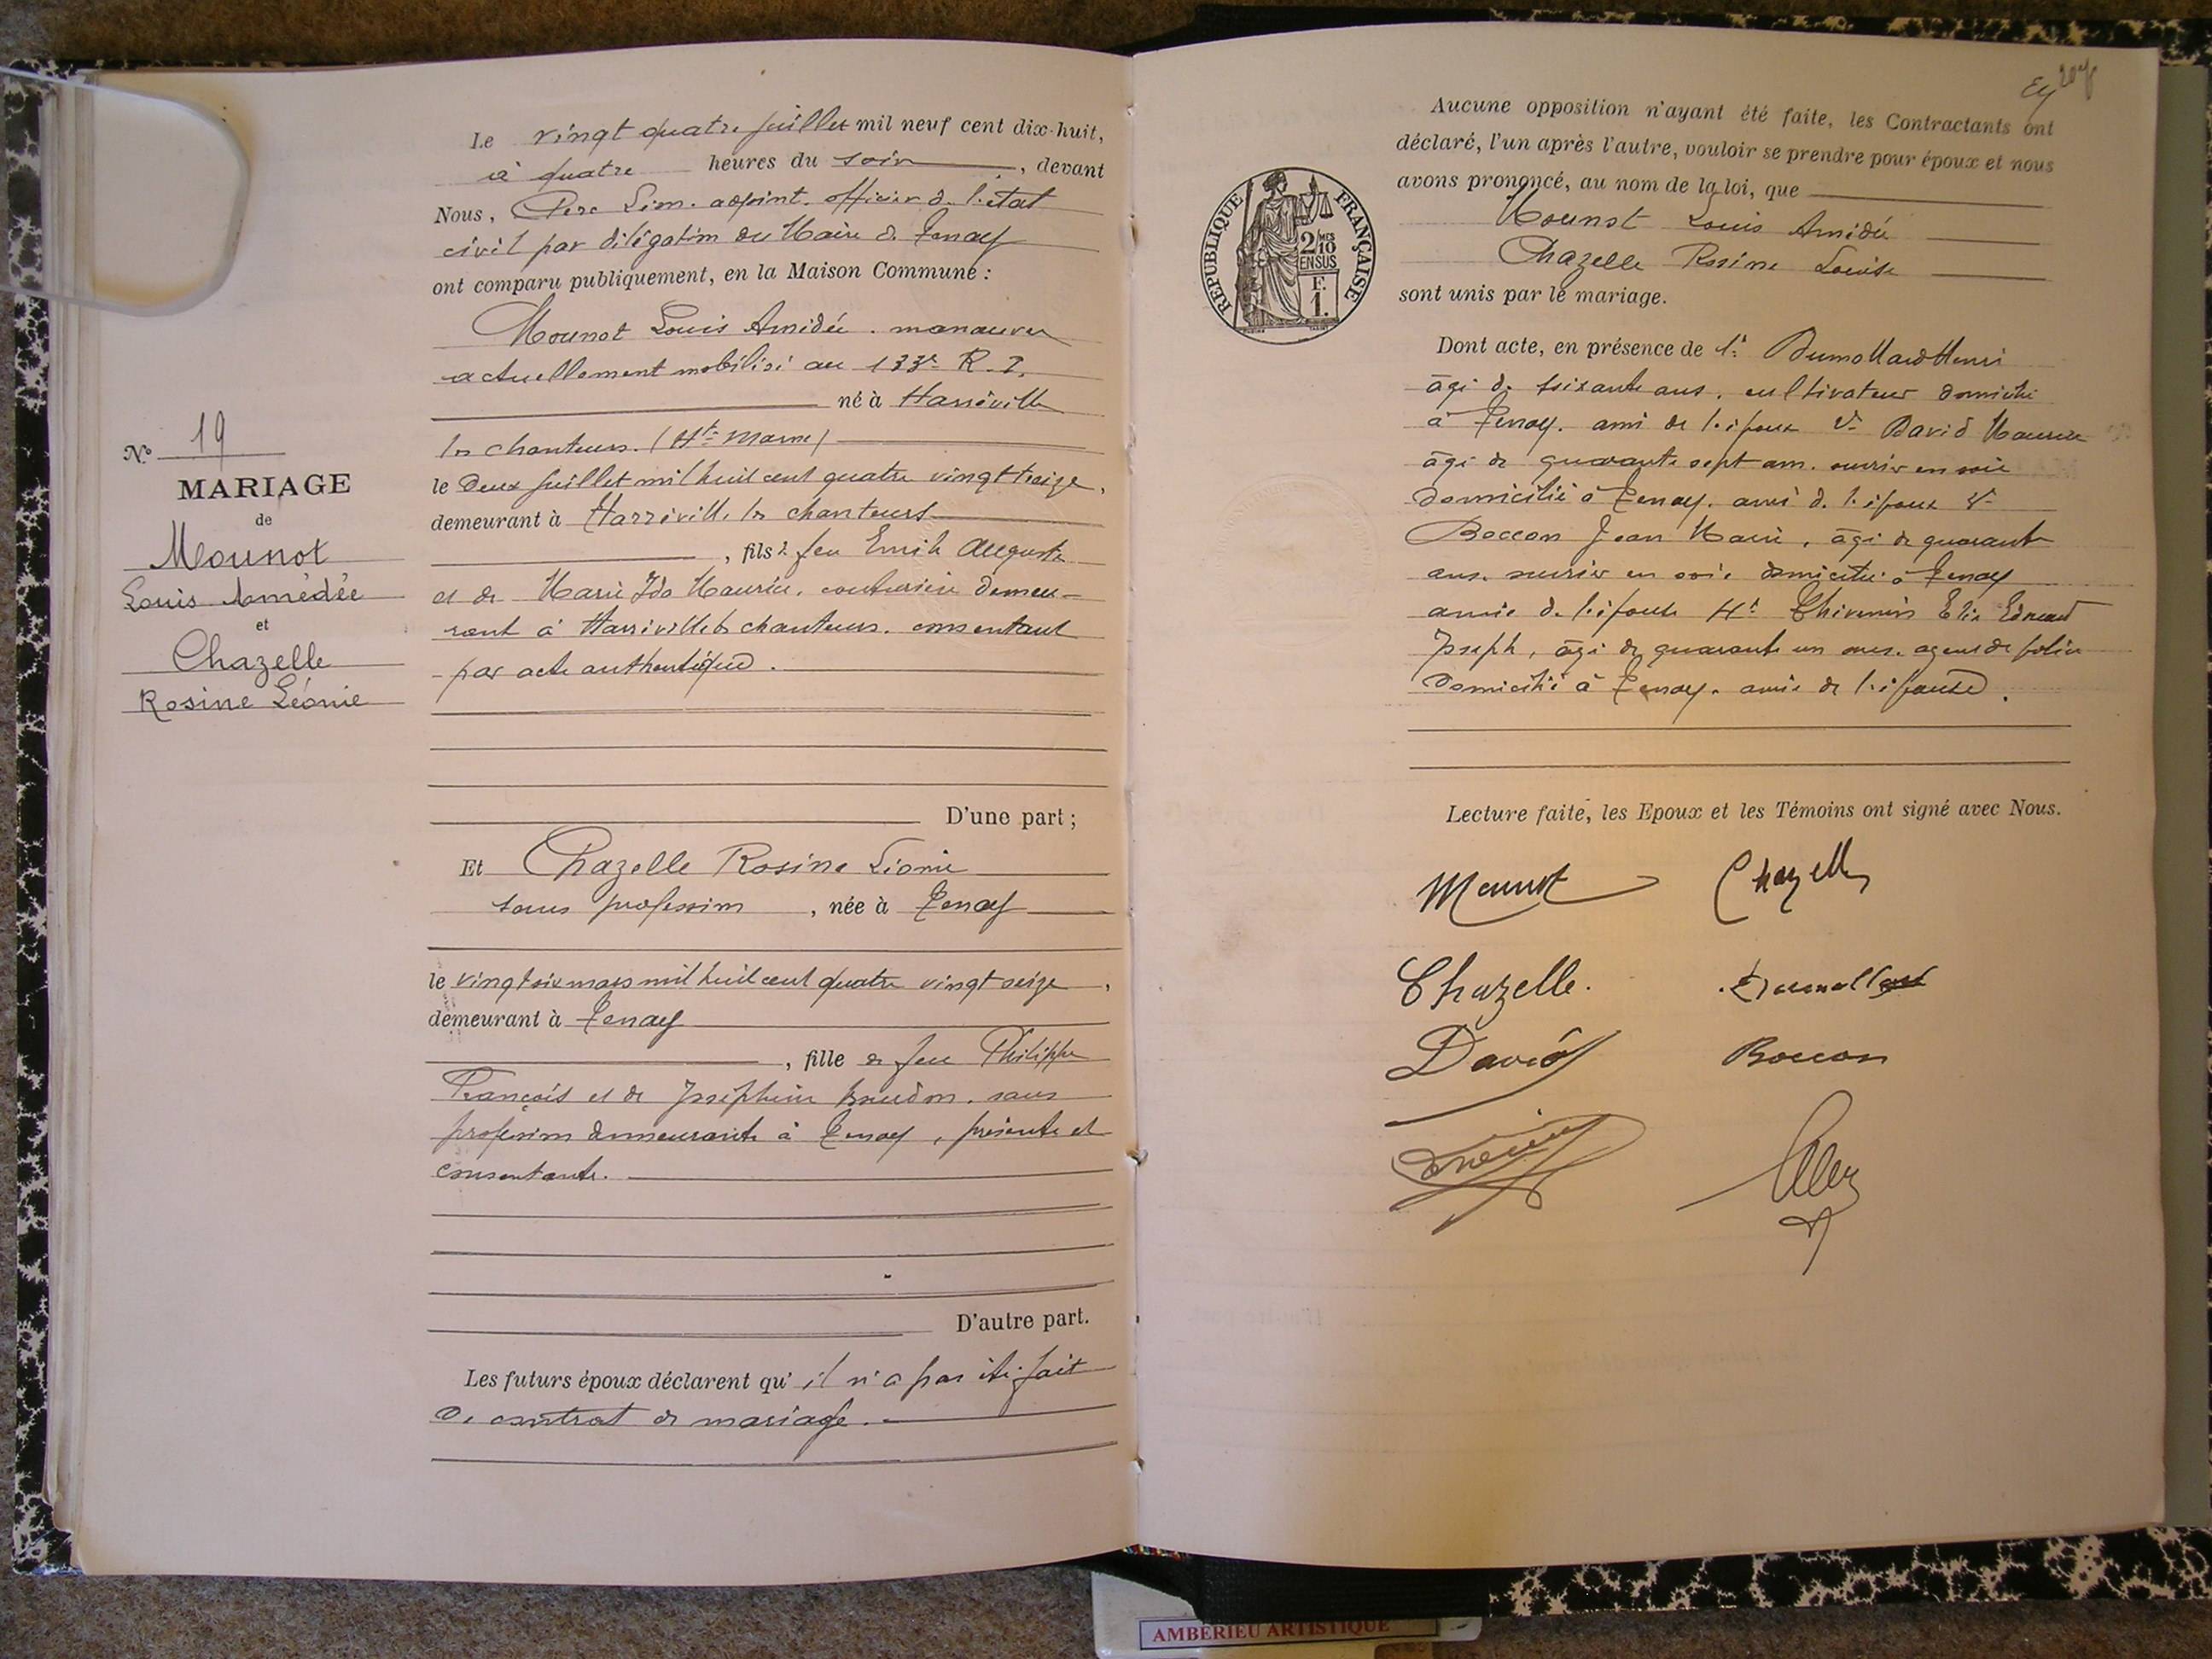 N° 19
MARIAGE
de
Mounot
Louis Amédée
et
Chazelle
Rosine Léonie
Le vingt quatre juillet mil neuf cent dix-huit,
à quatre heures du soir, devant
Nous, adjoint officier de l'état
civil par délégation du Maire de Tenay
ont comparu publiquement, en la Maison Commune :
Mounot Louis Amédée. manœuvre
actuellement mobilisé au 133e R. I.
né à Harréville
les chanteurs. (Hte Marne)
le deux juillet mil huit cent quatre vingt treize,
demeurant à Harréville les chanteurs
, fils de feu Emile Auguste
et de Marie Ida Maurice, couturière demeu-
rant à Harréville les chanteurs. consentant
par acte authentique.
D'une part ;
Et Chazelle Rosine Léonie
sans profession, née à Tenay
le vingt six mars mil huit cent quatre vingt seize,
demeurant à Tenay
, fille de feu Philippe
François et de Joséphine sans
profession demeurante à Tenay, présente et
consentante.
D'autre part.
Les futurs époux déclarent qu' il n'a pas été fait
de contrat de mariage.
207
Aucune opposition n'ayant été faite, les Contractants ont
déclaré, l'un après l'autre, vouloir se prendre pour époux et nous
avons prononcé, au nom de la loi, que
Mounot Louis Amédée
Chazelle Rosine Louise
sont unis par le mariage.
RÉPUBLIQUE FRANÇAISE
2/10 MES
EN SUS
F.
1.
Dont acte, en présence de 1° Dumollard Henri
âgé de soixante ans, cultivateur domicilié
à Tenay. ami de l'époux 2° David Maurice
âgé de quarante sept ans. ouvrier en soie
domicilié à Tenay. ami de l'époux 3°
Boccon Jean Marie, âgé de quarante
ans. ouvrier en soie domicilié à Tenay
amie de l'épouse 4° Elie Edmond
Joseph, âgé de quarante un ans. agent de police
domicilié à Tenay. amie de l'épouse.
Lecture faite, les Epoux et les Témoins ont signé avec Nous.
Mounot Chazelle
Chazelle. Dumollard
David Boccon
AMBÉRIEU ARTISTIQUE